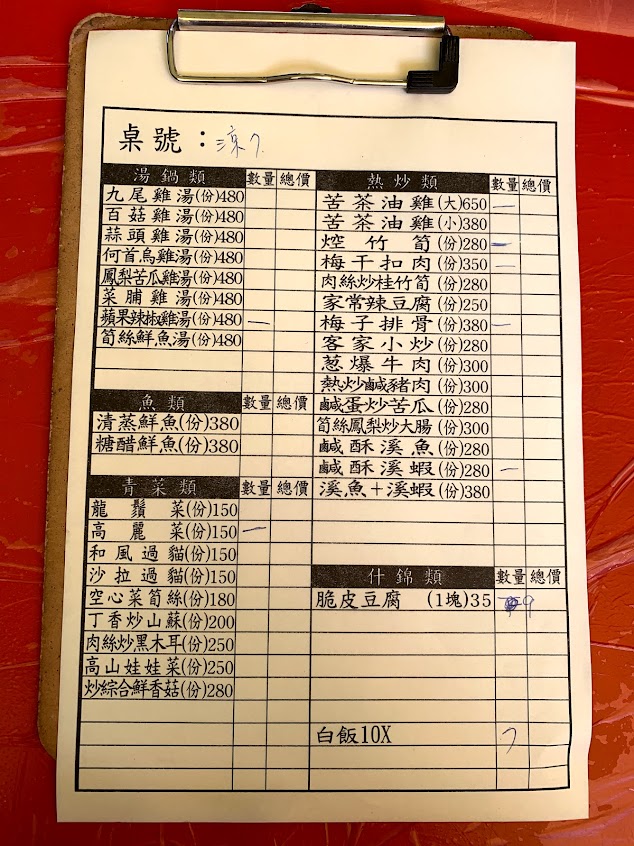 桌號：涼7
湯鍋類 數量 總價
九尾雞湯(份)480
百菇雞湯(份)480
蒜頭雞湯(份)480
何首烏雞湯(份)480
鳳梨苦瓜雞湯(份)480
菜脯雞湯(份)480
蘋果辣椒雞湯(份)480 一
筍絲鮮魚湯(份)480
魚類 數量 總價
清蒸鮮魚(份)380
糖醋鮮魚(份)380
青菜類 數量 總價
龍鬚菜(份)150
高麗菜(份)150 一
和風過貓(份)150
沙拉過貓(份)150
空心菜筍絲(份)180
丁香炒山蘇(份)200
肉絲炒黑木耳(份)250
高山娃娃菜(份)250
炒綜合鮮香菇(份)280
熱炒類 數量 總價
苦茶油雞(大)650 一
苦茶油雞(小)380
焢竹筍(份)280 一
梅干扣肉(份)350 一
肉絲炒桂竹筍(份)280
家常辣豆腐(份)250
梅子排骨(份)380 一
客家小炒(份)280
蔥爆牛肉(份)300
熱炒鹹豬肉(份)300
鹹蛋炒苦瓜(份)280
筍絲鳳梨炒大腸(份)300
鹹酥溪魚(份)280
鹹酥溪蝦(份)280 一
溪魚+溪蝦(份)380
什錦類 數量 總價
脆皮豆腐 (1塊)35 9
白飯10X 7